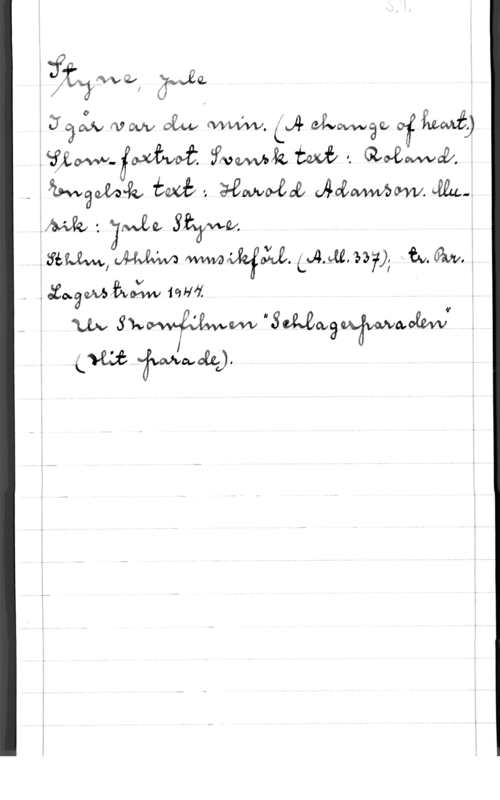 S.T.
Styne, Jule
I går var du min. (A change of heart.)
Slow-foxtrot. Svensk text: Roland.
Engelsk text: Harold Adamson. Mu-
sik: Jule Styne.
Sthlm, Ahlins musikförl. (A.M. 337); tr. Bar.
Lagerström 1944.
Ur Showfilmen "Schlagerparaden"
(Hit parade).